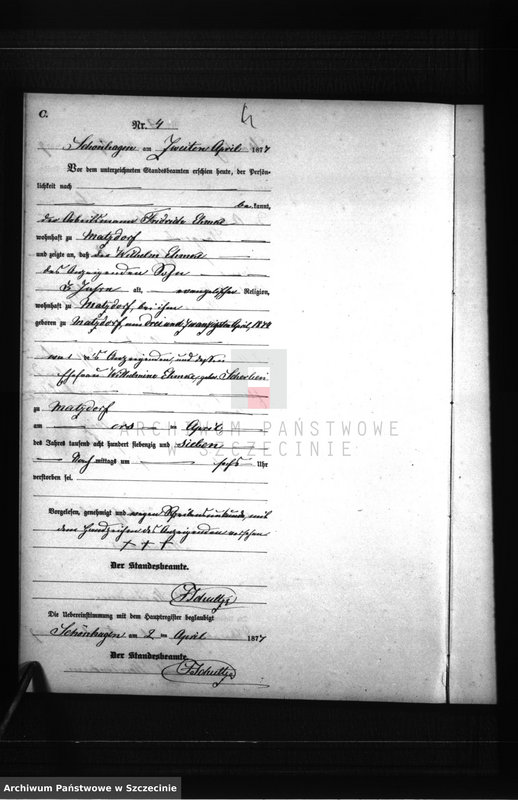 C.
4
Nr. 4
Schönhagen am Zweiten April 1877
Vor dem unterzeichneten Standesbeamten erschien heute, der Persön-
lichkeit nach
be kannt,
der Arbeitsmann Friedrich Ehmke
wohnhaft zu Matzdorf
und zeigte an, daß der Wilhelm Ehmke
des Anzeigenden Sohn
3 Jahre alt, evangelischer Religion,
wohnhaft zu Matzdorf, bei ihm
geboren zu Matzdorf, am drei und zwanzigsten April 1874
Anzeigenden, und dessen
Ehefrau Wilhelmine Ehmke, geb.
zu Matzdorf
am ersten April
des Jahres tausend acht hundert siebenzig und sieben
Nach mittags um sechs Uhr
verstorben sei.
Vorgelesen, genehmigt und wegen Schreibensunkunde, mit
dem Handzeichen des Anzeigenden versehen
+ + +
Der Standesbeamte.
Schultze
Die Uebereinstimmung mit dem Hauptregister beglaubigt
Schönhagen am 2 ten April 1877
Der Standesbeamte.
Schultze
ARCHIWUM PAŃSTWOWE
W SZCZECINIE
Archiwum Państwowe w Szczecinie